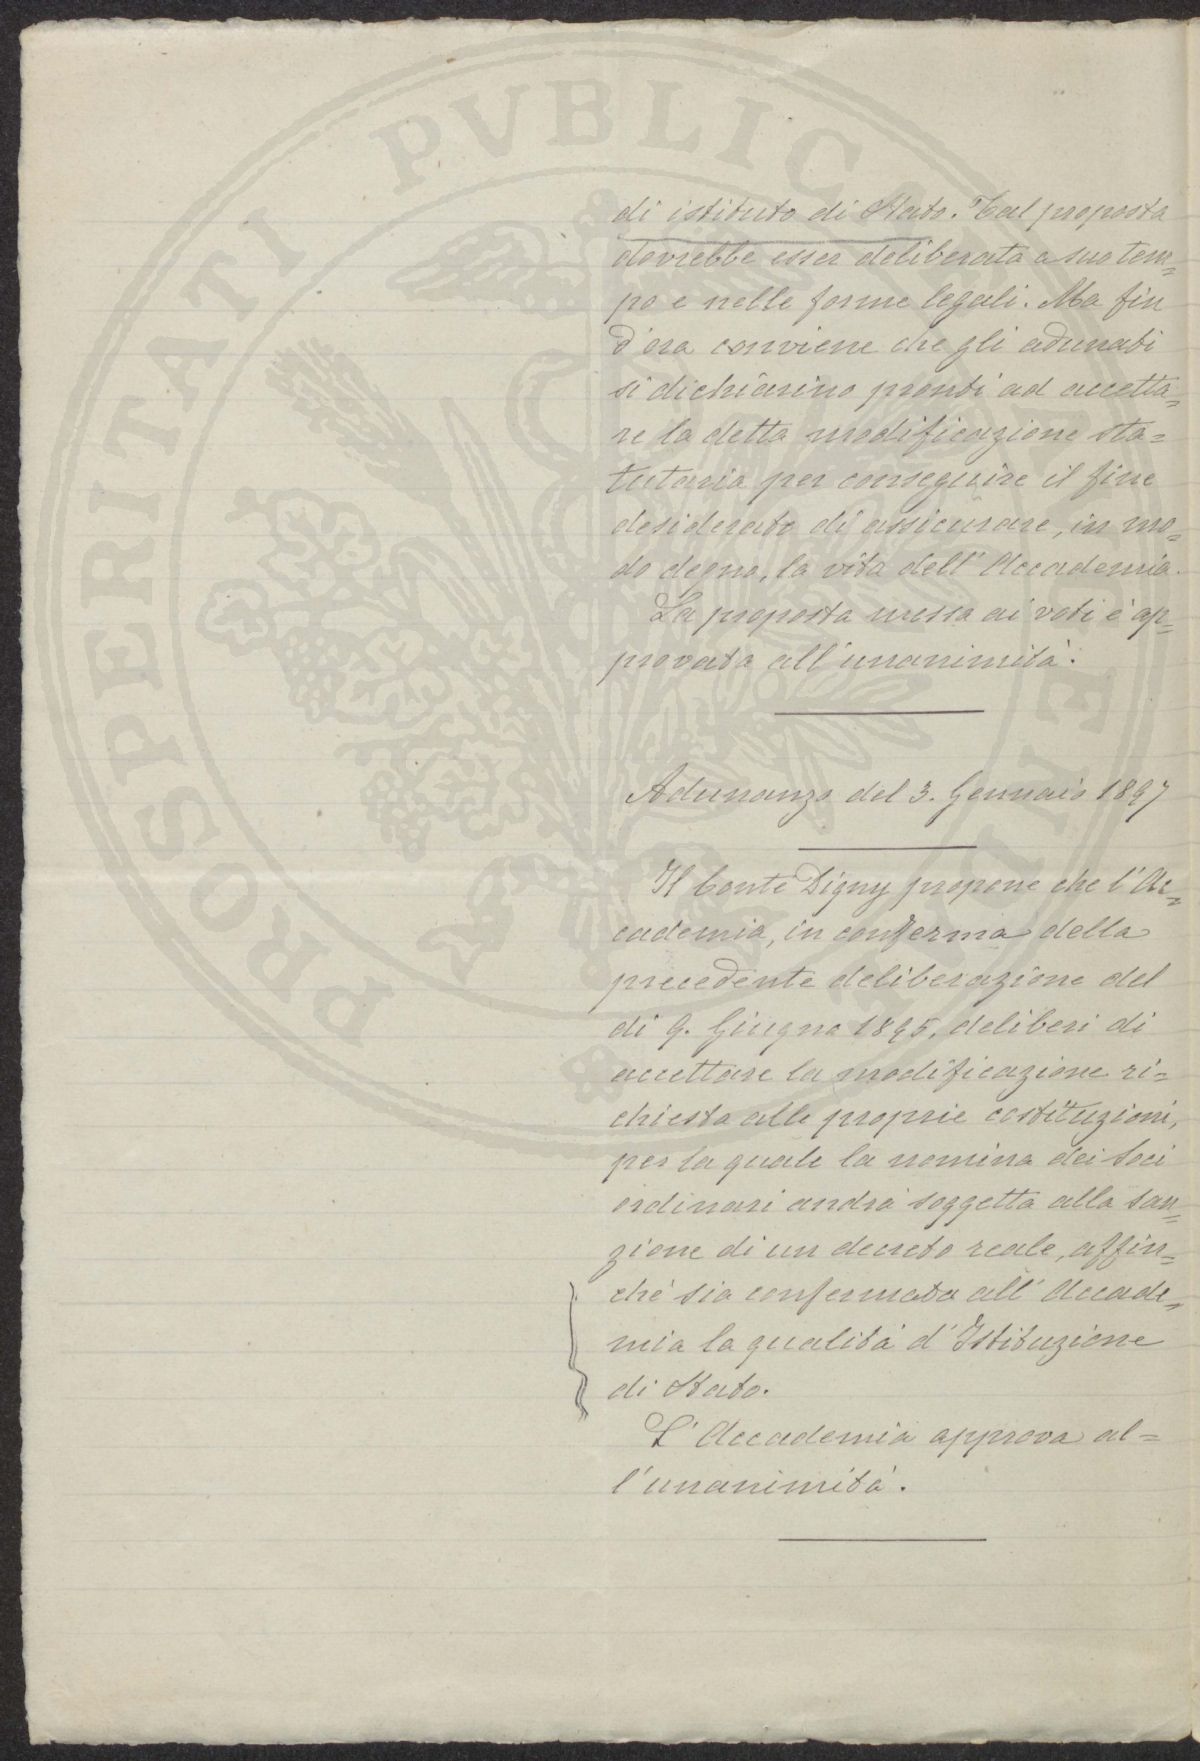 PROSPERITATI PVBLICAE
di istituto di Stato. Tal proposta
dovrebbe esser deliberata a suo tem=
po e nelle forme legali. Ma fin
d'ora conviene che gli adunati
si dichiarino pronti ad accetta=
re la detta modificazione sta=
tutaria per conseguire il fine
desiderato di assicurare, in mo=
do degno, la vita dell'Accademia.
La proposta messa ai voti è ap=
provata all'unanimità.
Adunanza del 3. Gennaio 1897
Il Conte Digny propone che l'Ac=
cademia, in conferma della
precedente deliberazione del
di 9. Giugno 1895, deliberi di
accettare la modificazione ri=
chiesta alle proprie costituzioni,
per la quale la nomina dei Soci
ordinari andrà soggetta alla san=
zione di un decreto reale, affin=
chè sia confermata all'Accade=
mia la qualità d'Istituzione
di Stato.
L'Accademia approva al=
l'unanimità.